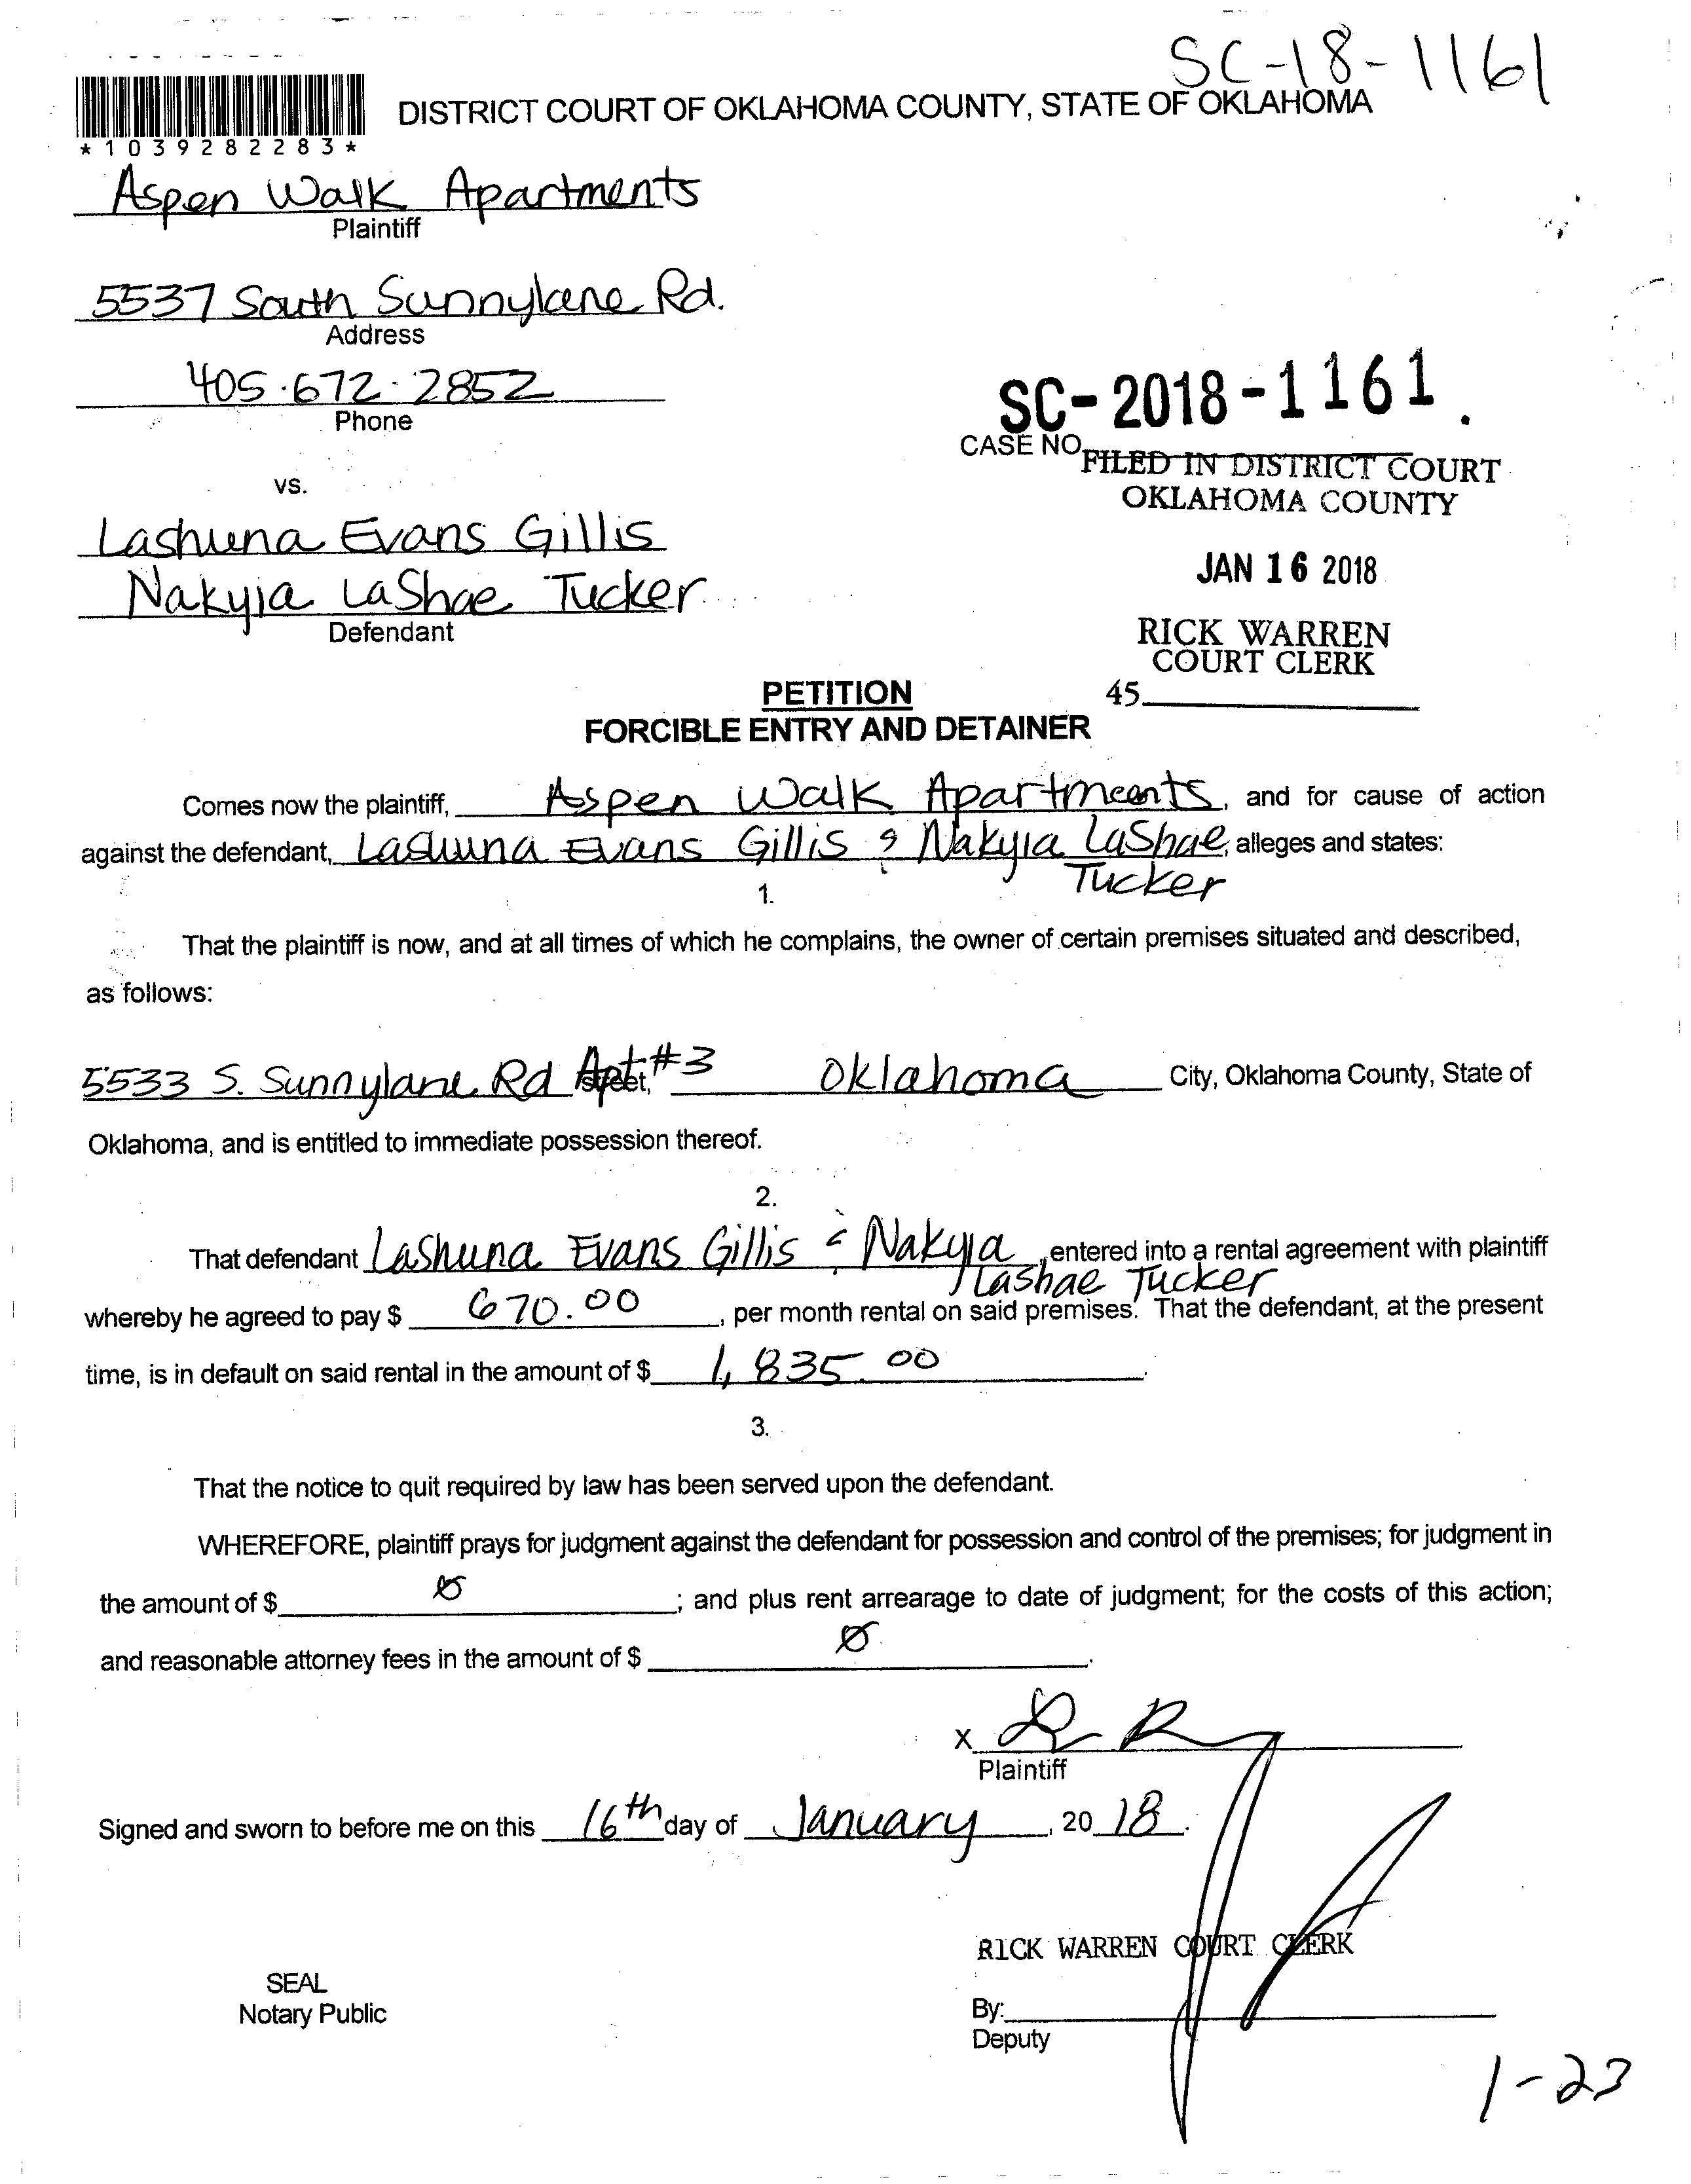 SC-18-1161
DISTRICT COURT OF OKLAHOMA COUNTY, STATE OF OKLAHOMA
*1039282283*
Aspen Walk Apartments
Plaintiff
5537 South Sunnylane Rd.
Address
405-672-2852
Phone
SC-2018-1161.
CASE NO.
FILED IN DISTRICT COURT
OKLAHOMA COUNTY
vs.
Lashuna Evans Gillis
JAN 16 2018
Nakyia LaShae Tucker
Defendant
RICK WARREN
COURT CLERK
PETITION
45
FORCIBLE ENTRY AND DETAINER
Comes now the plaintiff, Aspen Walk Apartments, and for cause of action
against the defendant, Lashuna Evans Gillis & Nakyia LaShae, alleges and states:
Tucker
1.
That the plaintiff is now, and at all times of which he complains, the owner of certain premises situated and described,
as follows:
5533 S. Sunnylane Rd Apt #3 street, Oklahoma City, Oklahoma County, State of
Oklahoma, and is entitled to immediate possession thereof.
2.
That defendant LaShuna Evans Gillis & Nakyia, entered into a rental agreement with plaintiff
Lashae Tucker
whereby he agreed to pay $ 670.00, per month rental on said premises. That the defendant, at the present
time, is in default on said rental in the amount of $ 1,835.00.
3.
That the notice to quit required by law has been served upon the defendant.
WHEREFORE, plaintiff prays for judgment against the defendant for possession and control of the premises; for judgment in
the amount of $ Ø; and plus rent arrearage to date of judgment; for the costs of this action;
and reasonable attorney fees in the amount of $ Ø.
X
Plaintiff
Signed and sworn to before me on this 16th day of January, 2018.
RICK WARREN COURT CLERK
SEAL
Notary Public
By:
Deputy
1-23